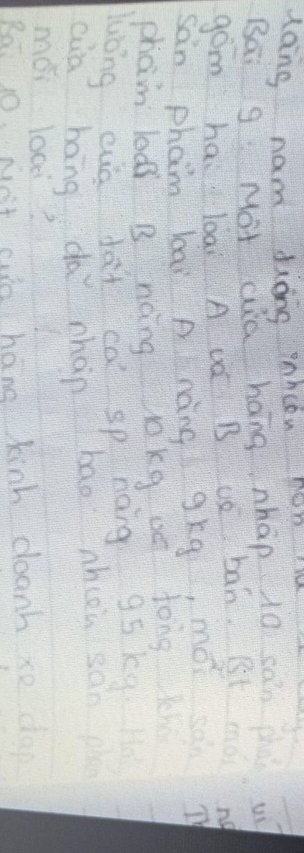 năm
Bài 9. Một cửa hàng nhập 10 sản phẩm
gồm hai loại A và B về bán. Bt mỗi
sản phẩm loại A nặng 9kg, mỗi sản
phẩm loại B nặng 10kg và tổng khối
lượng của tất cả sp nặng 95kg. Hỏi
cửa hàng đã nhập bao nhiêu sản phẩm
mỗi loại?
Bài 10. Một cửa hàng kinh doanh xe đạp